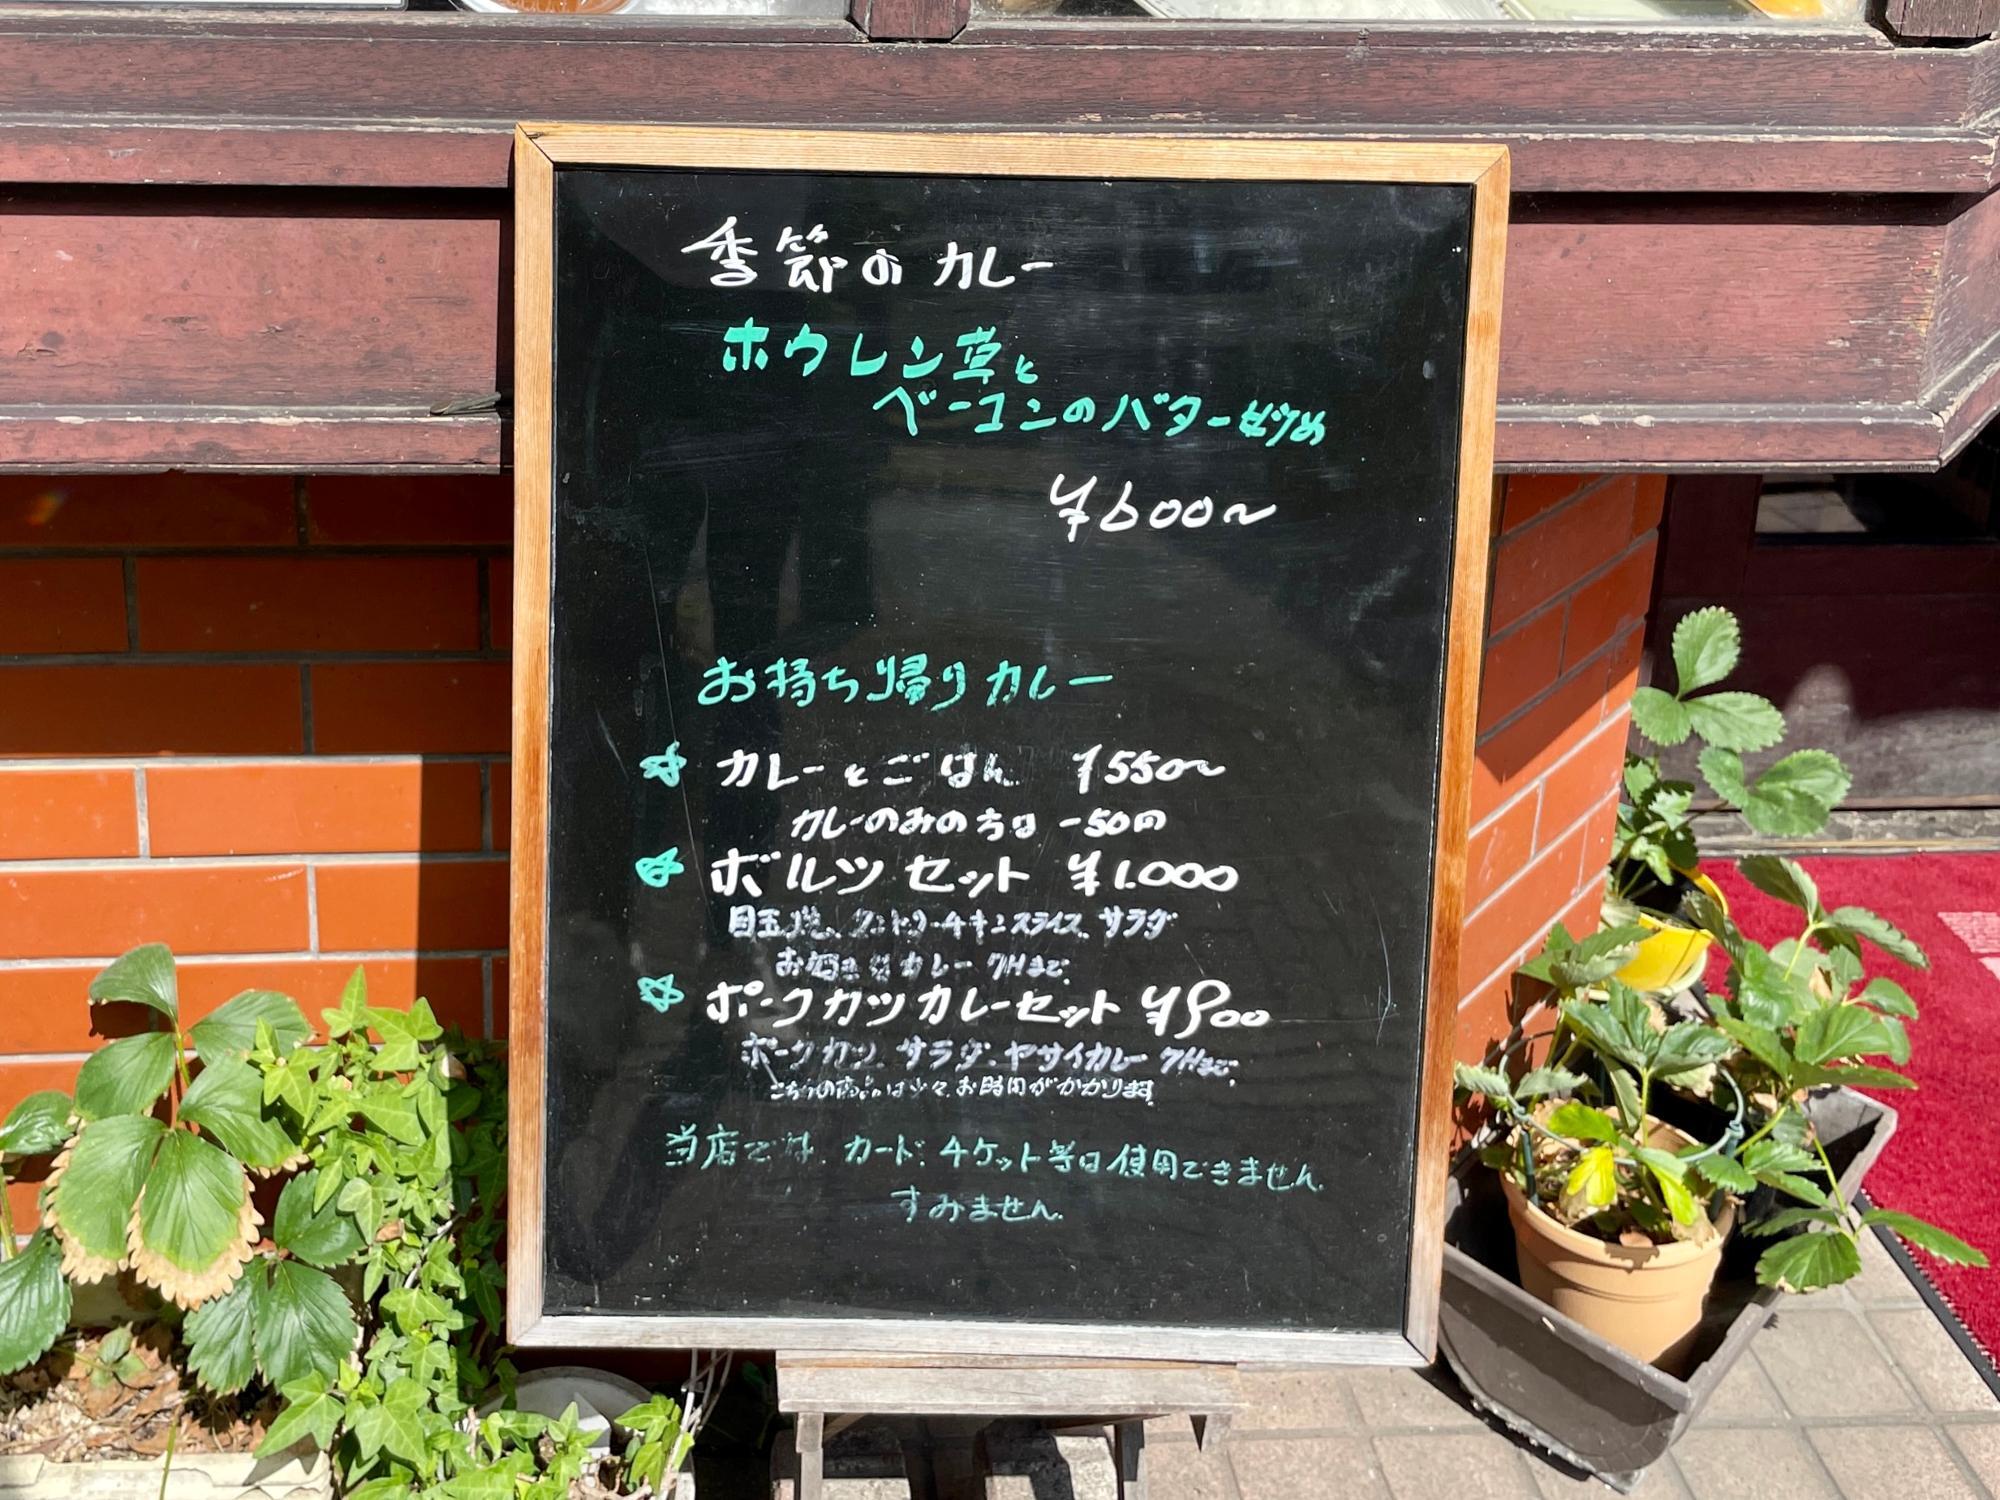 季節のカレー
ホウレン草と
ベーコンのバター炒め
¥600〜
お持ち帰りカレー
☆ カレーとごはん ¥550〜
カレーのみの方は -50円
☆ ボルツセット ¥1.000
目玉焼、カントリーチキンスライス、サラダ
お好きなカレー 7Hまで
☆ ポークカツカレーセット ¥900
ポークカツ、サラダ、ヤサイカレー 7Hまで、
こちらの商品は少々、お時間がかかります
当店では、カード、チケット等は使用できません
すみません.